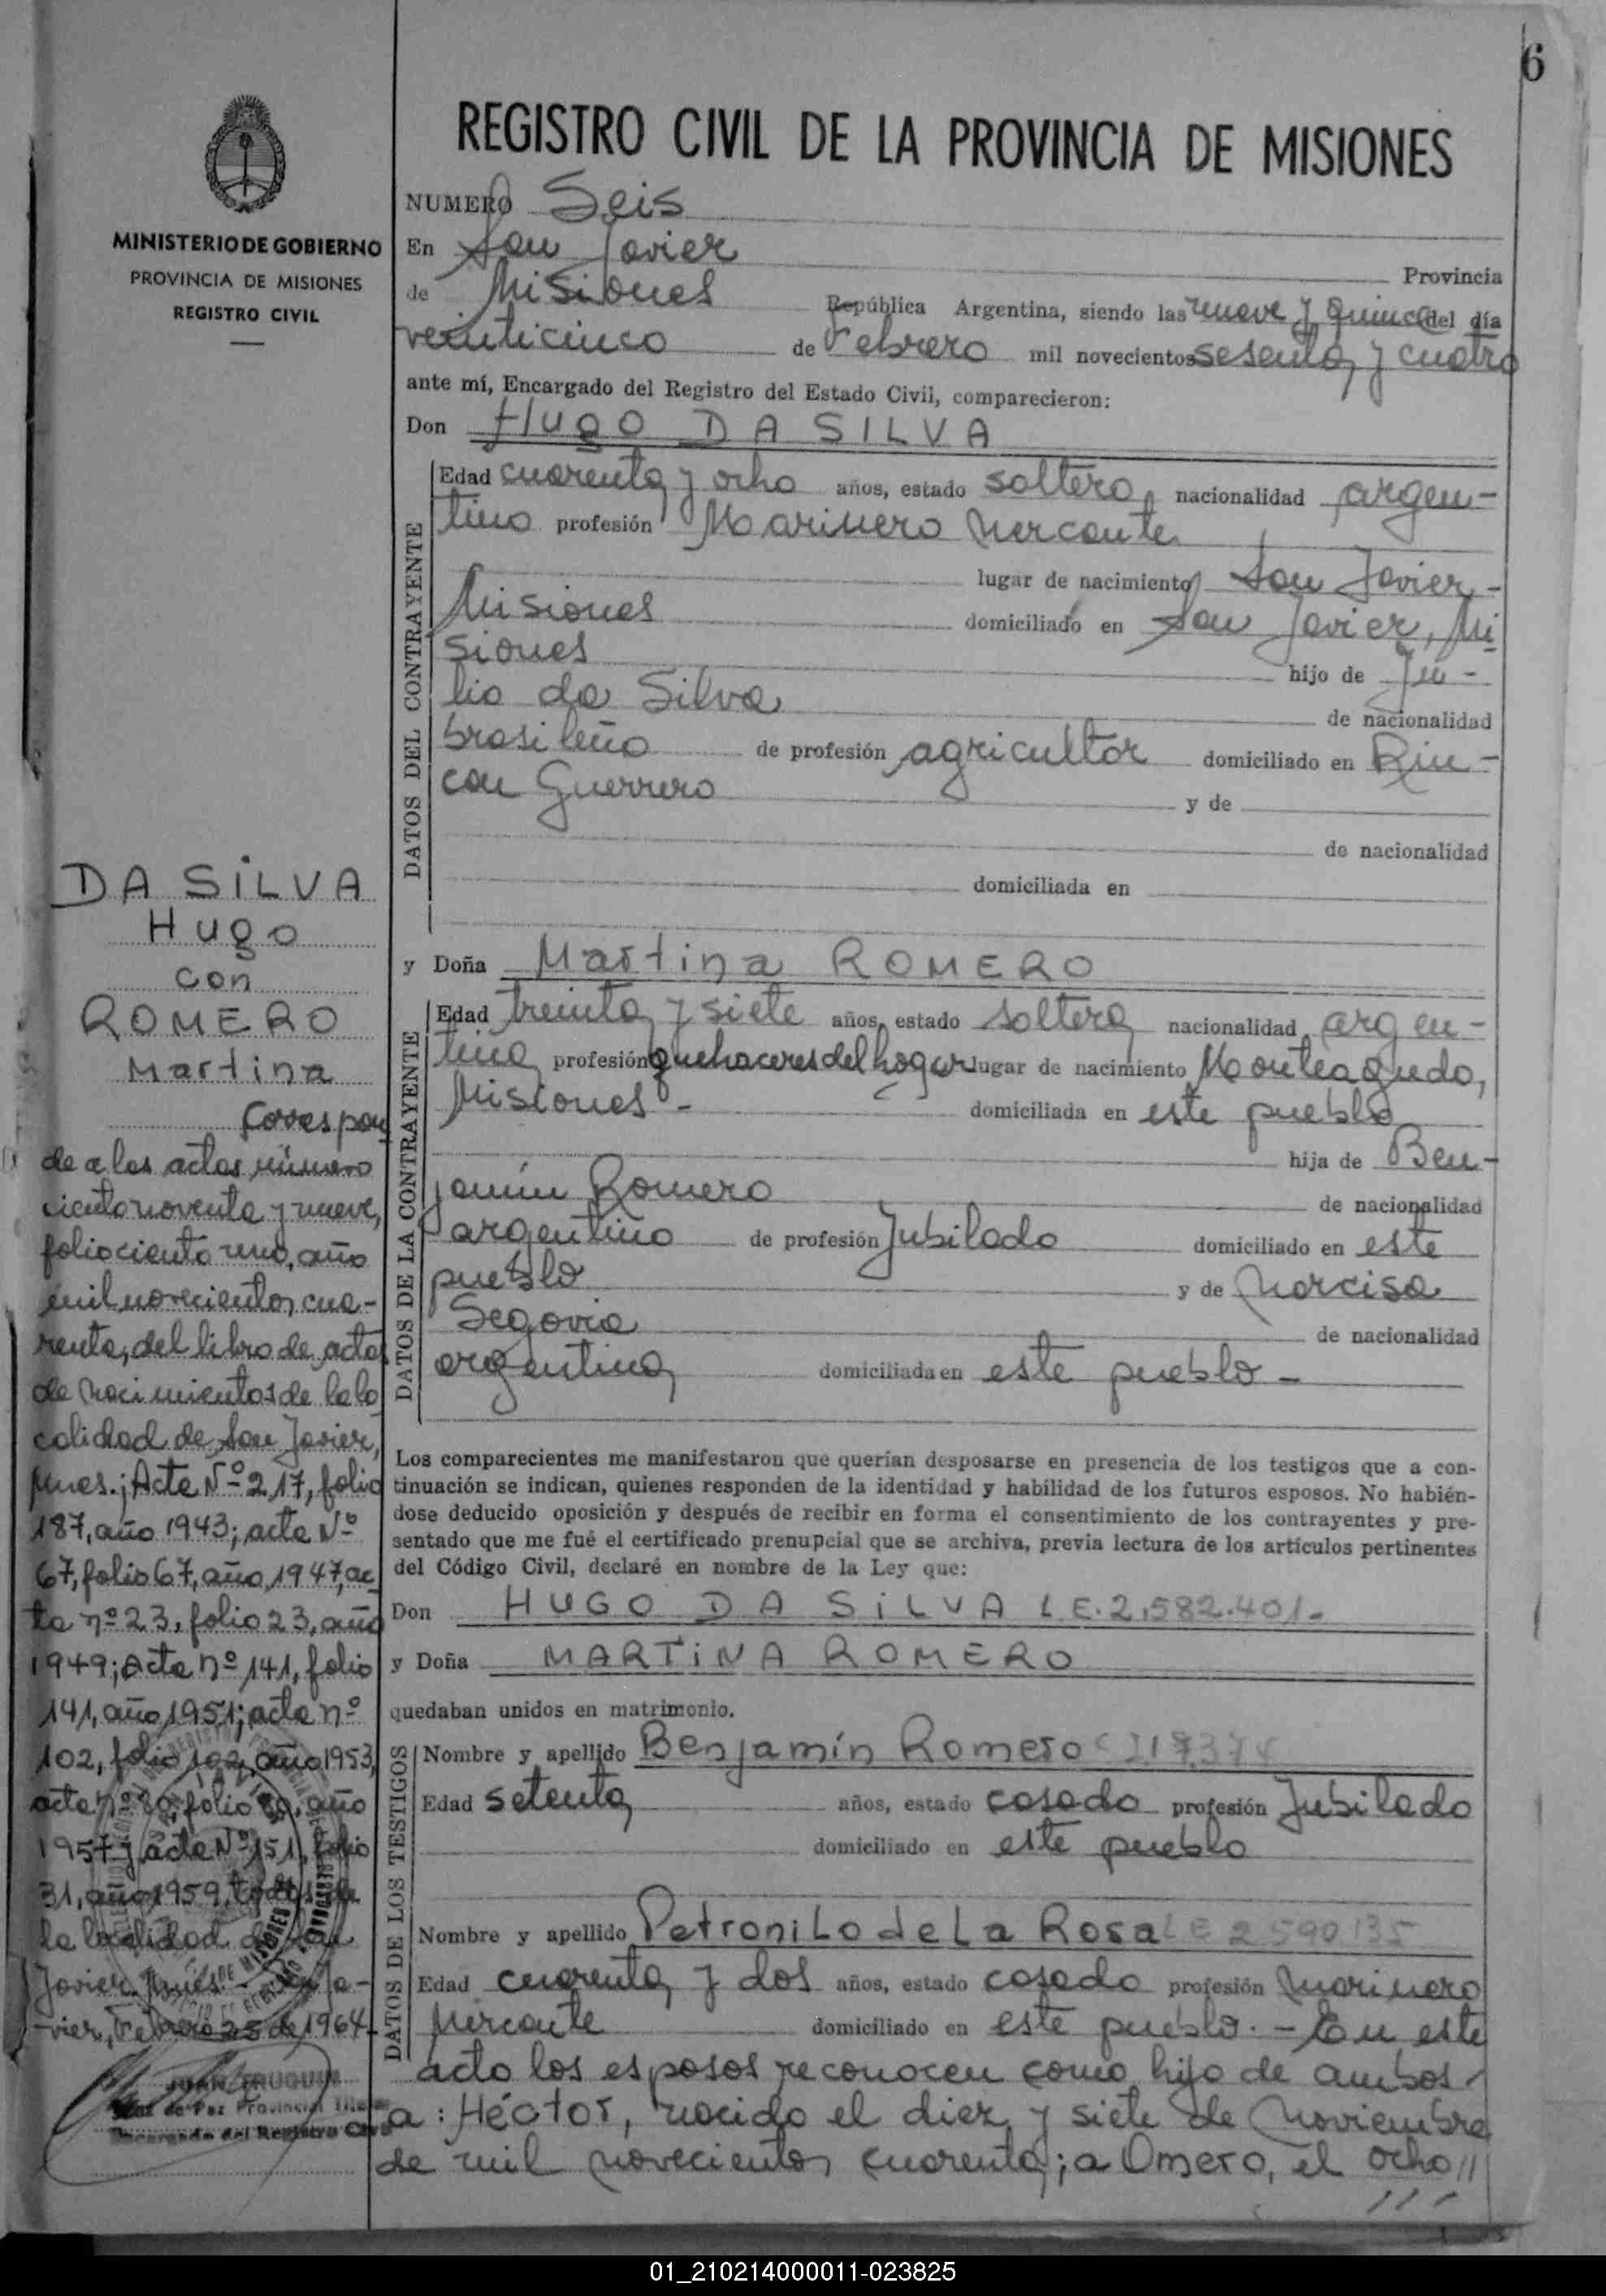 6
REGISTRO CIVIL DE LA PROVINCIA DE MISIONES
MINISTERIO DE GOBIERNO
PROVINCIA DE MISIONES
REGISTRO CIVIL
NUMERO Seis
En San Javier Provincia
de Misiones República Argentina, siendo las nueve y quince del día
veinticinco de Febrero mil novecientos sesenta y cuatro
ante mí, Encargado del Registro del Estado Civil, comparecieron:
Don Hugo DA SILVA
DATOS DEL CONTRAYENTE
Edad cuarenta y ocho años, estado soltero, nacionalidad argen-
tino profesión Marinero Mercante
lugar de nacimiento San Javier -
Misiones domiciliado en San Javier, Mi
siones hijo de Ju -
lio da Silva de nacionalidad
brasileño de profesión agricultor domiciliado en Rin -
con Guerrero y de
de nacionalidad
domiciliada en
y Doña Martina ROMERO
DATOS DE LA CONTRAYENTE
Edad treinta y siete años, estado soltera nacionalidad argen -
tina profesión quehaceres del hogar lugar de nacimiento Monteagudo,
Misiones - domiciliada en este pueblo
hija de Ben -
jamín Romero de nacionalidad
argentino de profesión Jubilado domiciliado en este
pueblo y de Narcisa
Segovia de nacionalidad
argentina domiciliada en este pueblo -
Los comparecientes me manifestaron que querían desposarse en presencia de los testigos que a con-
tinuación se indican, quienes responden de la identidad y habilidad de los futuros esposos. No habién-
dose deducido oposición y después de recibir en forma el consentimiento de los contrayentes y pre-
sentado que me fué el certificado prenupcial que se archiva, previa lectura de los artículos pertinentes
del Código Civil, declaré en nombre de la Ley que:
Don HUGO DA SiLVA L E. 2.582.401.-
y Doña MARTiNA ROMERO
quedaban unidos en matrimonio.
DATOS DE LOS TESTIGOS
Nombre y apellido Benjamín Romero
Edad setenta años, estado casado profesión Jubilado
domiciliado en este pueblo
Nombre y apellido Petronilo de La Rosa L E 2 590 135
Edad cuarenta y dos años, estado casado profesión marinero
Mercante domiciliado en este pueblo. - En este
acto los esposos reconocen como hijo de ambos
a: Héctor, nacido el diez y siete de Noviembre
de mil novecientos cuarenta; a Omero, el ocho //
///
DA SiLVA
Hugo
con
ROMERO
Martina
Correspon
de a las actas número
ciento noventa y nueve,
folio ciento uno, año
mil novecientos cua-
renta, del libro de actas
de Nacimientos de la lo
calidad de San Javier,
Mnes.; Acta Nº 217, folio
187, año 1943; acta Nº
67, folio 67, año 1947, ac
ta nº 23, folio 23, año
1949; Acta nº 141, folio
141, año 1951; acta nº
102, folio 102, año 1953,
acta nº 80, folio 80, año
1957; acta Nº 151, folio
31, año 1959, todas de
la localidad de San
Javier Mnes - San Ja-
vier, Febrero 25 de 1964
Juez de Paz Provincial Titular
Encargado del Registro Civil
01_210214000011-023825